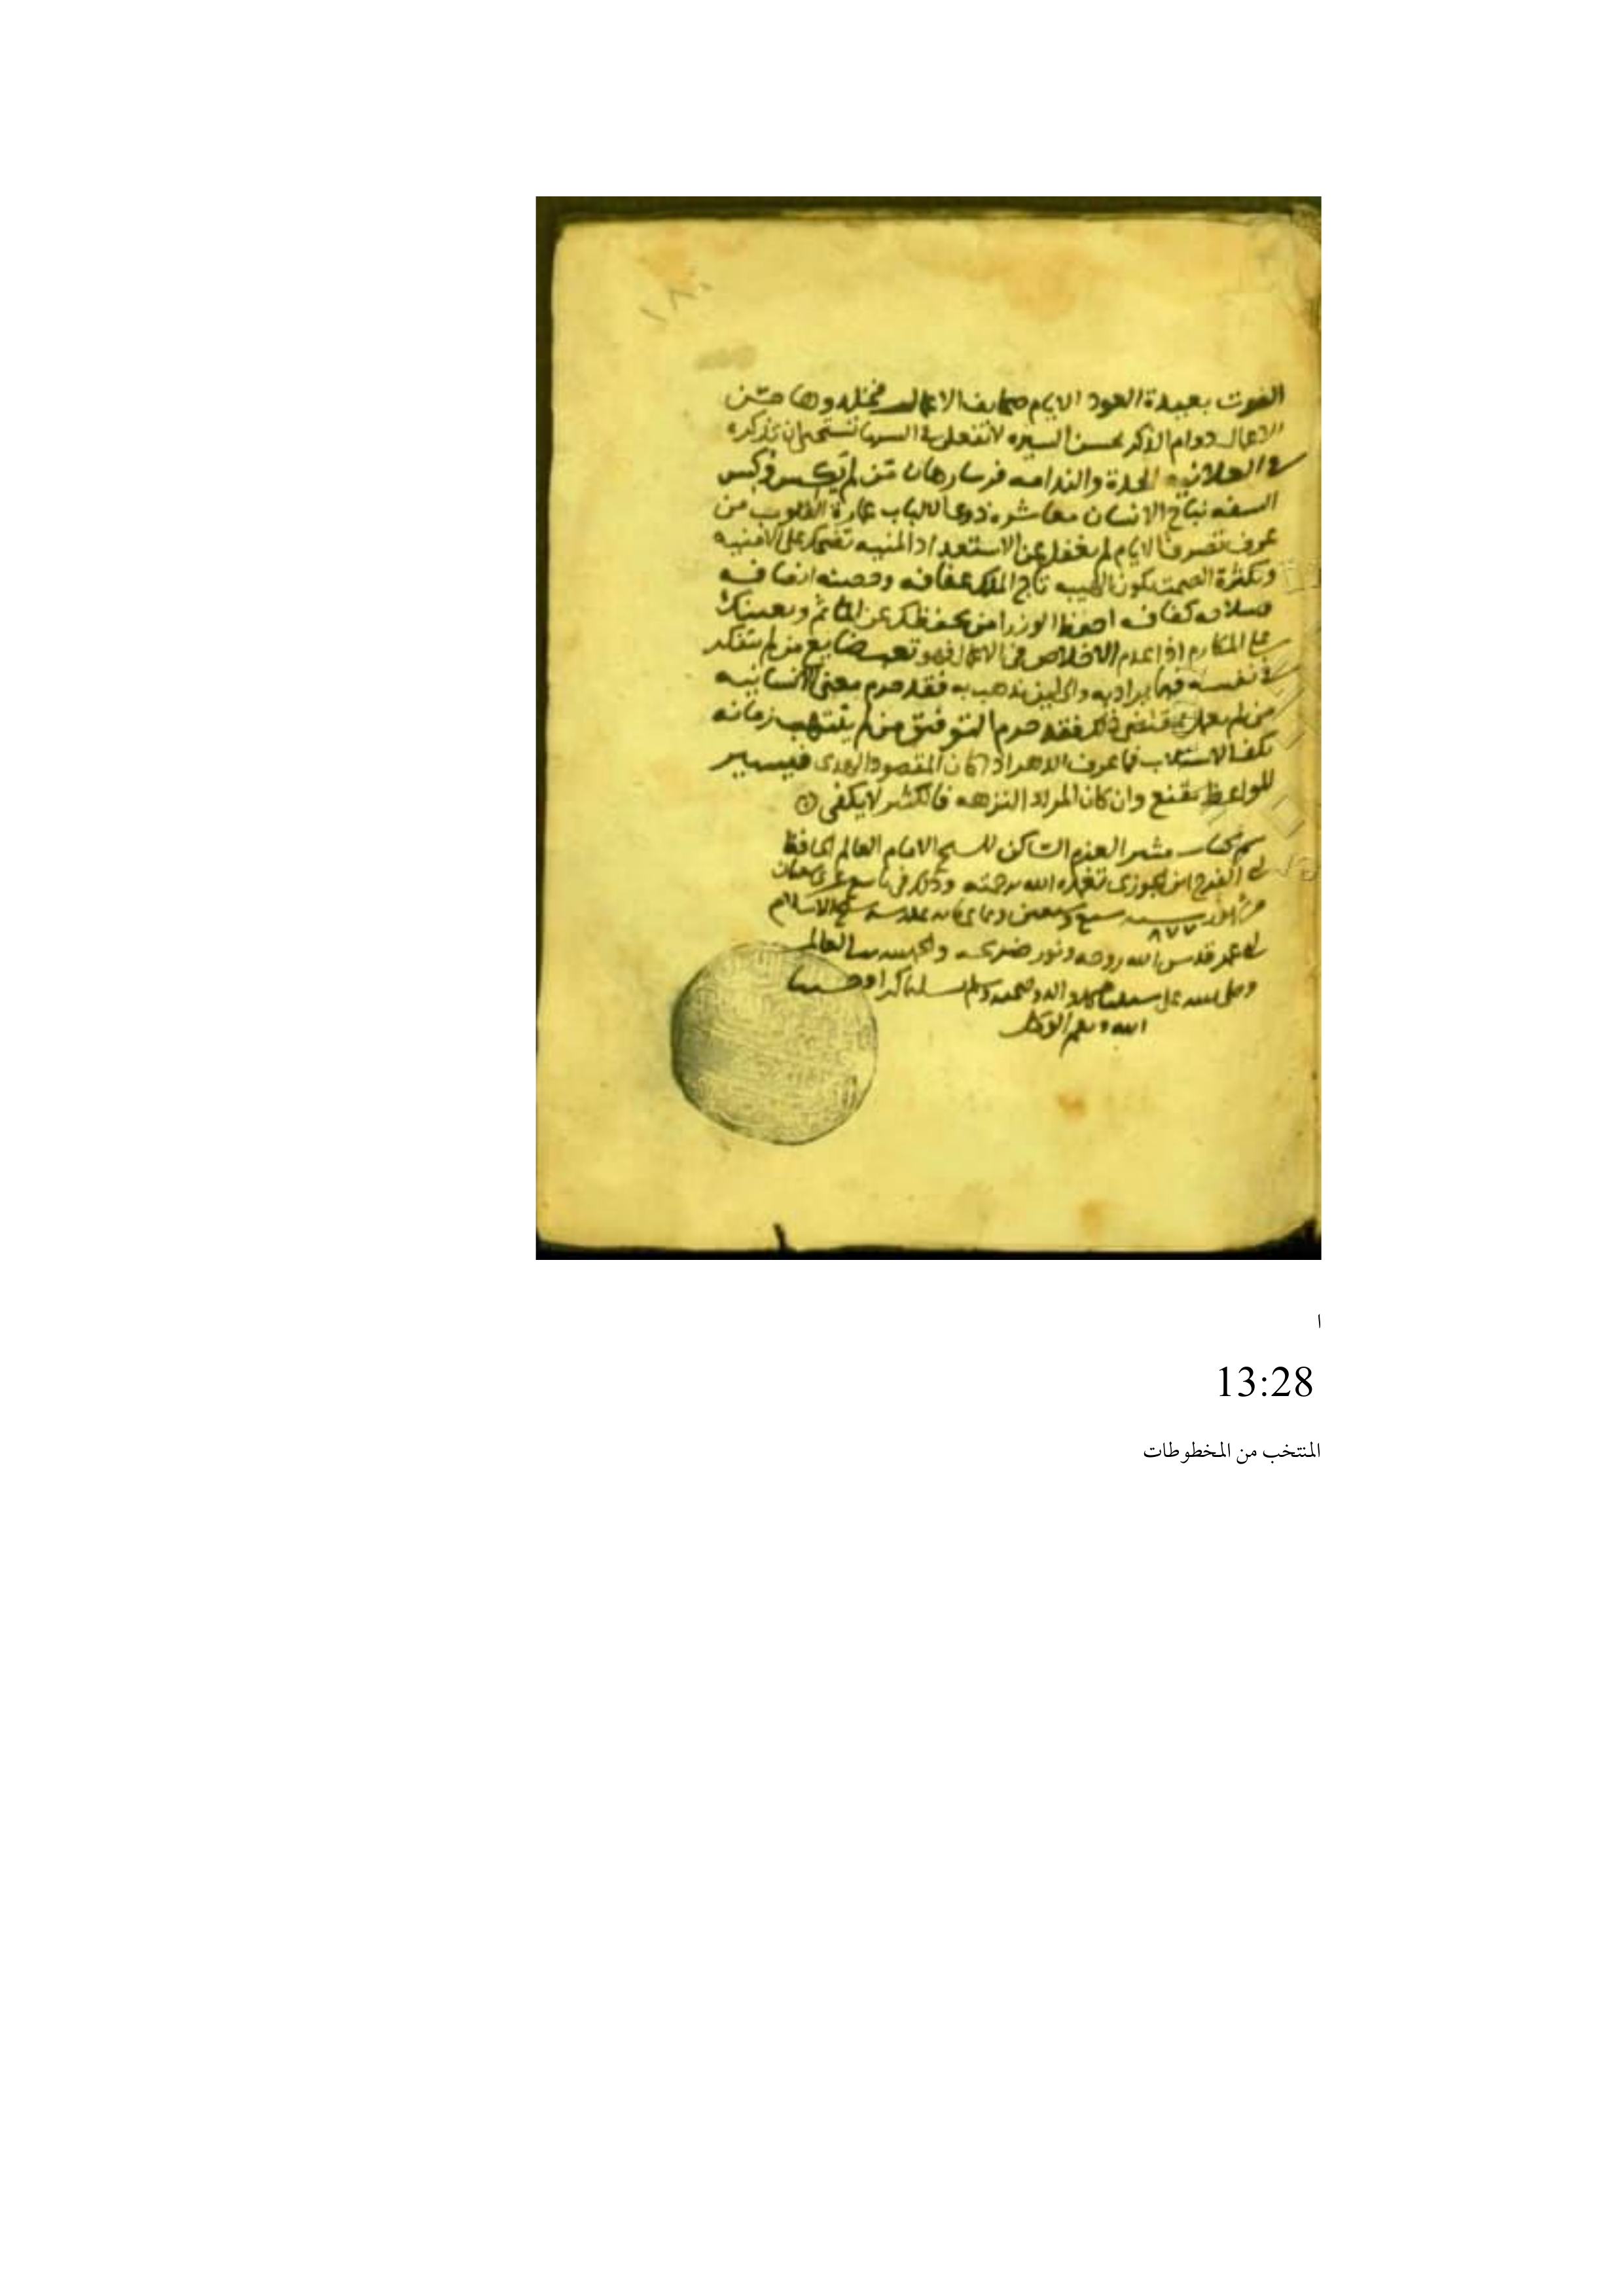 ١٨٠
الفوت بعيدة العود الايام صحايف الاعمال فخلدوها حسن
الاعمال دوام الذكر بحسن السيره لا تفعل في السر ما تستحي ان تذكره
في العلانيه الحدة والندامه فرسا رهان من لم
السفه نباح الانسان معاشرة ذوي الالباب عمارة القلوب من
عرف تصرف الايام لم يغفل عن الاستعداد المنيه تضحك على الامنيه
وبكثرة الصمت تكون الهيبه تاج الملك عفافه وحصنه انصافه
وسلاحه كفافه احفظ الوزرا من يحفظك عن الماثم ويعينك
على المكارم اذا عدم الاخلاص في الاعمال فهو تعب ضايع من لم يتفكر
في نفسه فيما يراد به والى اين يذهب به فقد حرم معنى الانسانيه
من لم يعمل بمقتضى ذلك فقد حرم التوفيق من لم ينتهب زمانه
بكف الاستلاب فما عرف الدهر اذا كان المقصود الهدى فيسير
للواعظ يقنع وان كان المراد النزهه فالكثير لا يكفي
تم كتاب مثير العزم الساكن للشيخ الامام العالم الحافظ
ابي الفرج ابن الجوزي تغمده الله برحمته وذلك في تاسع عشري شعبان
سنه سبع وسبعين وثماني مايه بمدرسة شيخ الاسلام
٨٧٧
ابي عمر قدس الله روحه ونور ضريحه والحمد لله رب العالمين
وصلى الله على سيدنا محمد واله وصحبه وسلم تسليما كثيرا وحسبنا
الله ونعم الوكيل
ا
13:28
المنتخب من المخطوطات